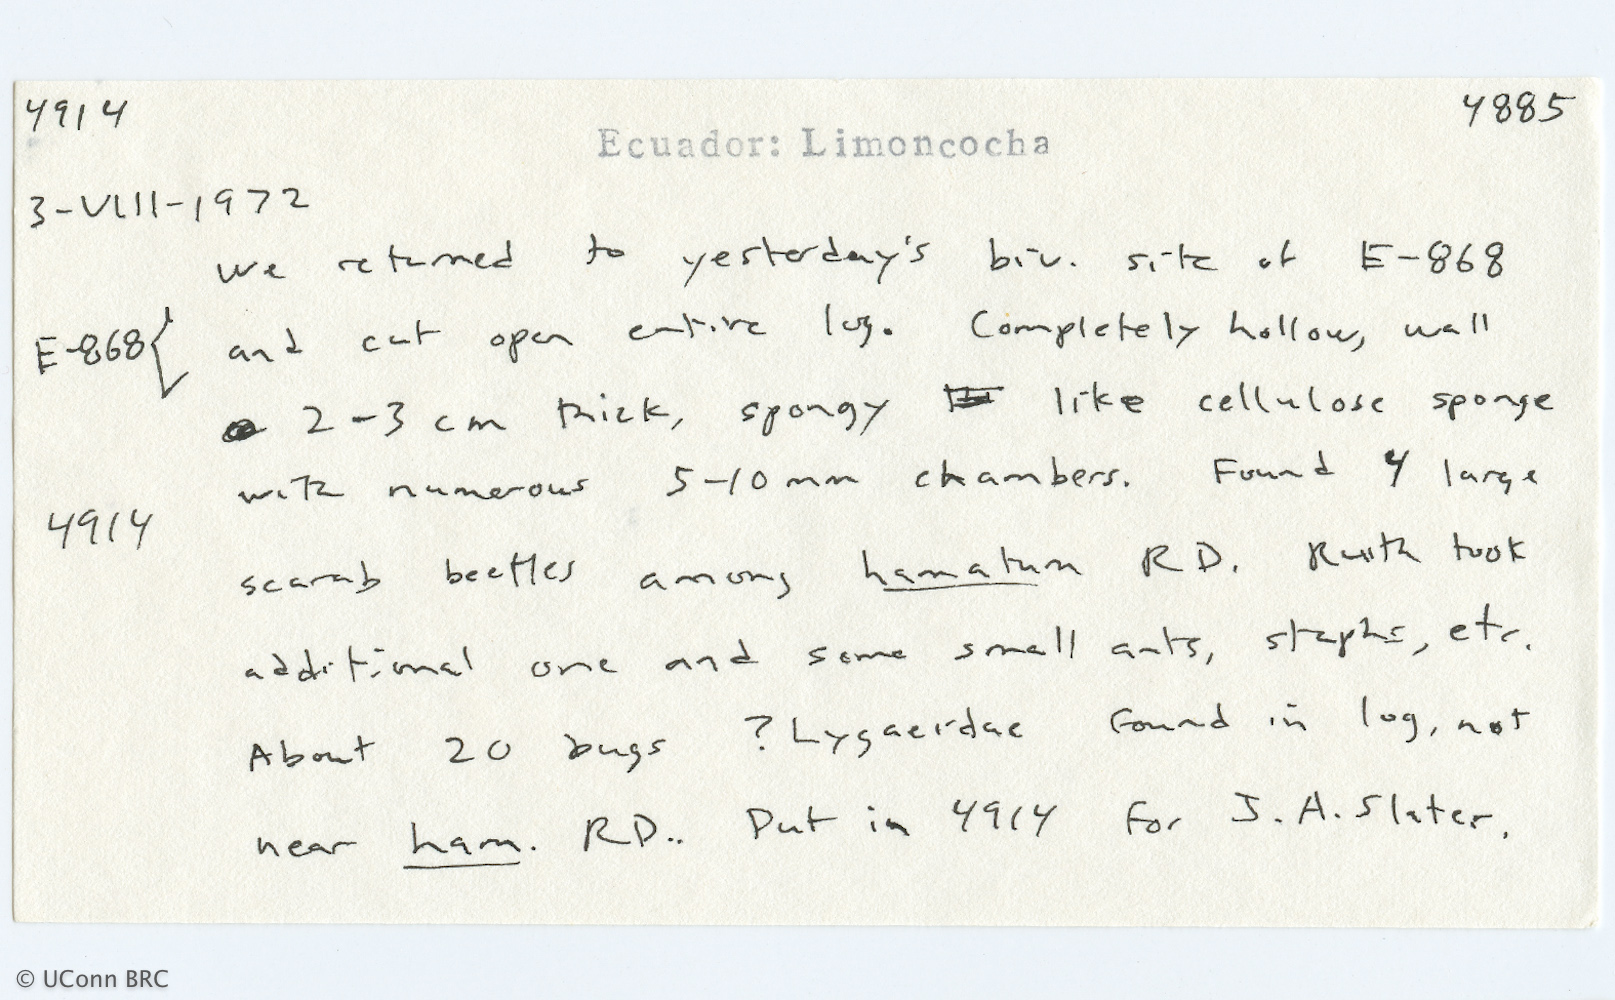 4914 4885
Ecuador: Limoncocha
3-VIII-1972
We returned to yesterday's biv. site of E-868
E-868 { and cut open entire log. Completely hollow, wall
2-3 cm thick, spongy like cellulose sponge
with numerous 5-10 mm chambers. Found 4 large
4914
scarab beetles among hamatum RD. Ruth took
additional one and some small ants, staphs, etc.
About 20 bugs ? Lygaeidae found in log, not
near ham. RD.. Put in 4914 for J.A. Slater.
© UConn BRC